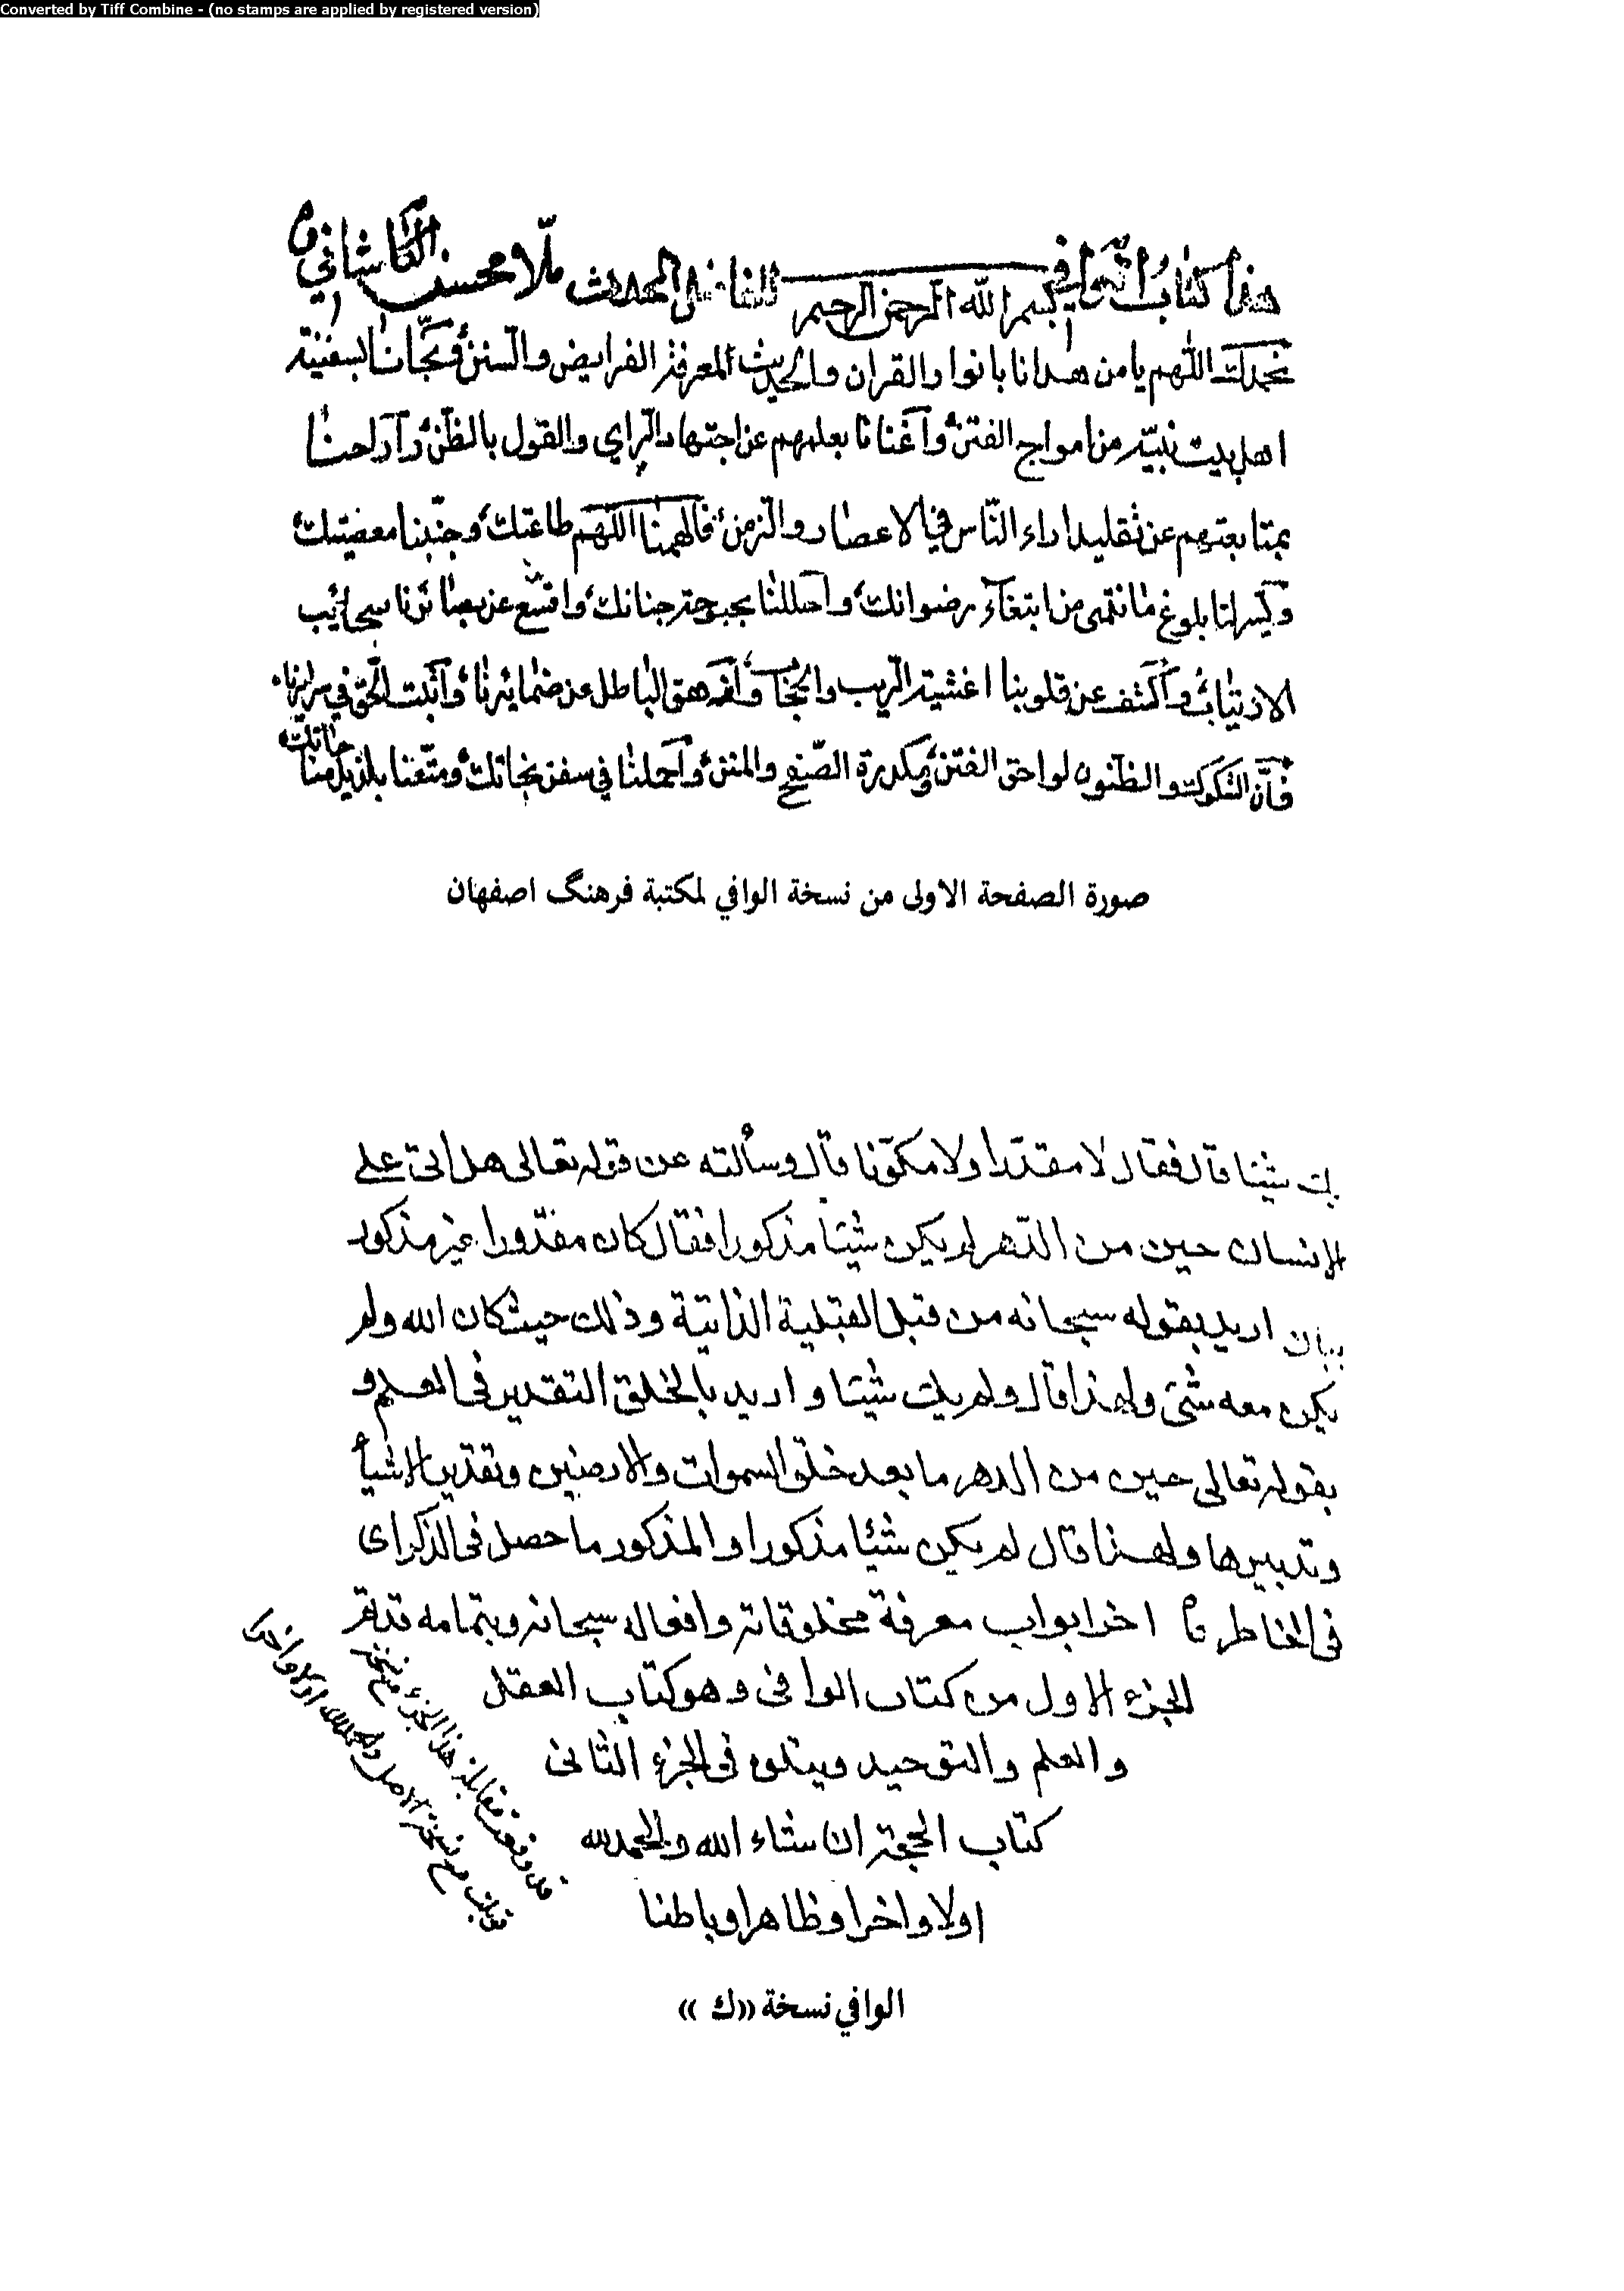 Converted by Tiff Combine - (no stamps are applied by registered version)
هذا كتاب الوافي بسم الله الرحمن الرحيم للفاضل المحدث ملّا محسن الكاشاني
نحمدك اللهم يا من هدانا بانوار القران والحديث لمعرفة الفرايض والسنن ونجّانا بسفينة
اهل بيت نبيّه من امواج الفتن وآغنانا بعلمهم عن اجتهاد الراي والقول بالظنّ وآراحنا
بمتابعتهم عن تقليد اراء النّاس في الاعصار والزمن فالهمنا اللهم طاعتك وجنّبنا معصيتك
ويسّر لنا بلوغ ما نتمى من ابتغآء رضوانك وآحللنا بحبوحة جنانك واقشع عن بصائرنا سحائب
الارتياب وآكشف عن قلوبنا اغشية الريب والحجاب وآزهق الباطل عن ضمايرنا وآثبت الحقّ في سرايرنا
فآنّ الشكوك والظنون لواحق الفتن ومكدرة الصّنح والمنن وآحملنا في سفن نجاتك ومتّعنا بلذيذ مناجاتك
صورة الصفحة الاولى من نسخة الوافي لمكتبة فرهنگ اصفهان
يك شيئا قال فقال لا مقدّرا ولا مكوّنا قال وسألته عن قوله تعالى هل اتى على
الانسان حين من الدّهر لم يكن شيئا مذكورا فقال كان مقدّورا غير مذكور
بيان اريد بقوله سبحانه من قبل القبلية الذاتية وذلك حيث كان الله ولم
يكن معه شئ ولهذا قال ولم يك شيئا واريد بالخلق التقدير فى العلم و
بقوله تعالى حين من الدهر ما بعد خلق السموات والارضين وتقدير الاشيأ
وتدبيرها ولهذا قال لم يكن شيئا مذكورا والمذكور ما حصل فى الذكر اى
فى الخاطر اخر ابواب معرفة مخلوقاته وافعاله سبحانه وبتمامه قد تم
الجزء الاول من كتاب الوافى وهو كتاب العقل
والعلم والتوحيد ويتلوه فى الجزء الثانى
كتاب الحجة ان شاء الله والحمد لله
اولا واخرا وظاهرا وباطنا
قد وقعت مقابلة هذا الجزء مع نسخة
قوبلت مع نسخة الاصل والحمد لله اولا واخرا
الوافي نسخة «ك»